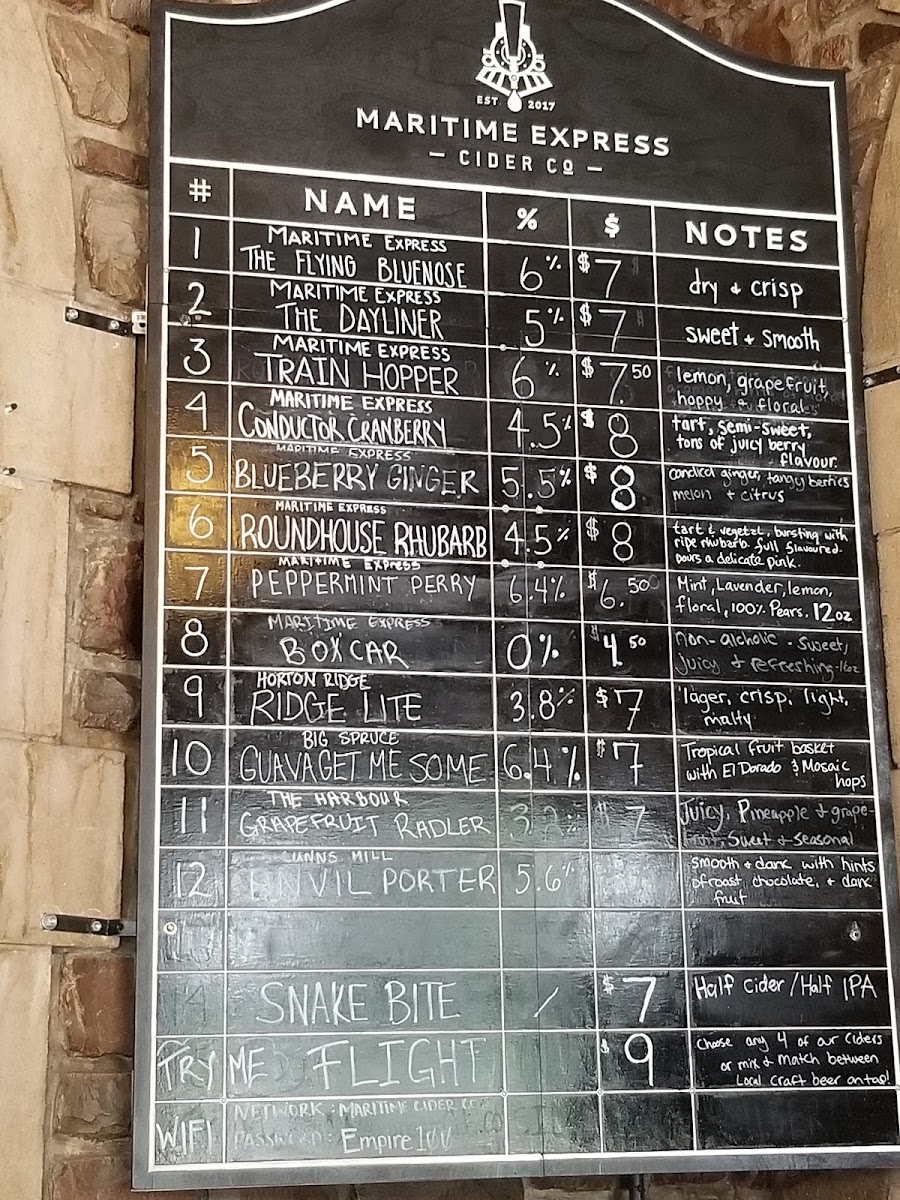 EST. 2017
MARITIME EXPRESS
— CIDER Cº —
# NAME % $ NOTES
1 MARITIME EXPRESS
THE FLYING BLUENOSE 6% $7 dry & crisp
2 MARITIME EXPRESS
THE DAYLINER 5% $7 sweet & smooth
3 MARITIME EXPRESS
TRAIN HOPPER 6% $7.50 lemon, grapefruit,
hoppy & floral
4 MARITIME EXPRESS
CONDUCTOR CRANBERRY 4.5% $8 tart, semi-sweet,
tons of juicy berry
flavour.
5 MARITIME EXPRESS
BLUEBERRY GINGER 5.5% $8 candied ginger, tangy berries
melon & citrus
6 MARITIME EXPRESS
ROUNDHOUSE RHUBARB 4.5% $8 tart & vegetal, bursting with
ripe rhubarb. full flavoured.
pours a delicate pink.
7 MARITIME EXPRESS
PEPPERMINT PERRY 6.4% $6.50 Mint, Lavender, lemon,
floral, 100% Pears. 12oz
8 MARITIME EXPRESS
BOXCAR 0% $4.50 non-alcholic - sweet,
juicy & refreshing-16oz
9 HORTON RIDGE
RIDGE LITE 3.8% $7 lager, crisp, light,
malty
10 BIG SPRUCE
GUAVAGET ME SOME 6.4% $7 Tropical fruit basket
with El Dorado & Mosaic
hops
11 THE HARBOUR
GRAPEFRUIT RADLER 3.2% $7 Juicy, Pineapple & grape-
fruit, Sweet & seasonal
12 LUNNS MILL
ANVIL PORTER 5.6% smooth & dark with hints
of roast, chocolate, & dark
fruit
14 SNAKE BITE / $7 Half Cider/Half IPA
TRY ME FLIGHT $9 Choose any 4 of our ciders
or mix & match between
Local craft beer on tap!
WIFI NETWORK: MARITIME CIDER CO
PASSWORD: Empire100